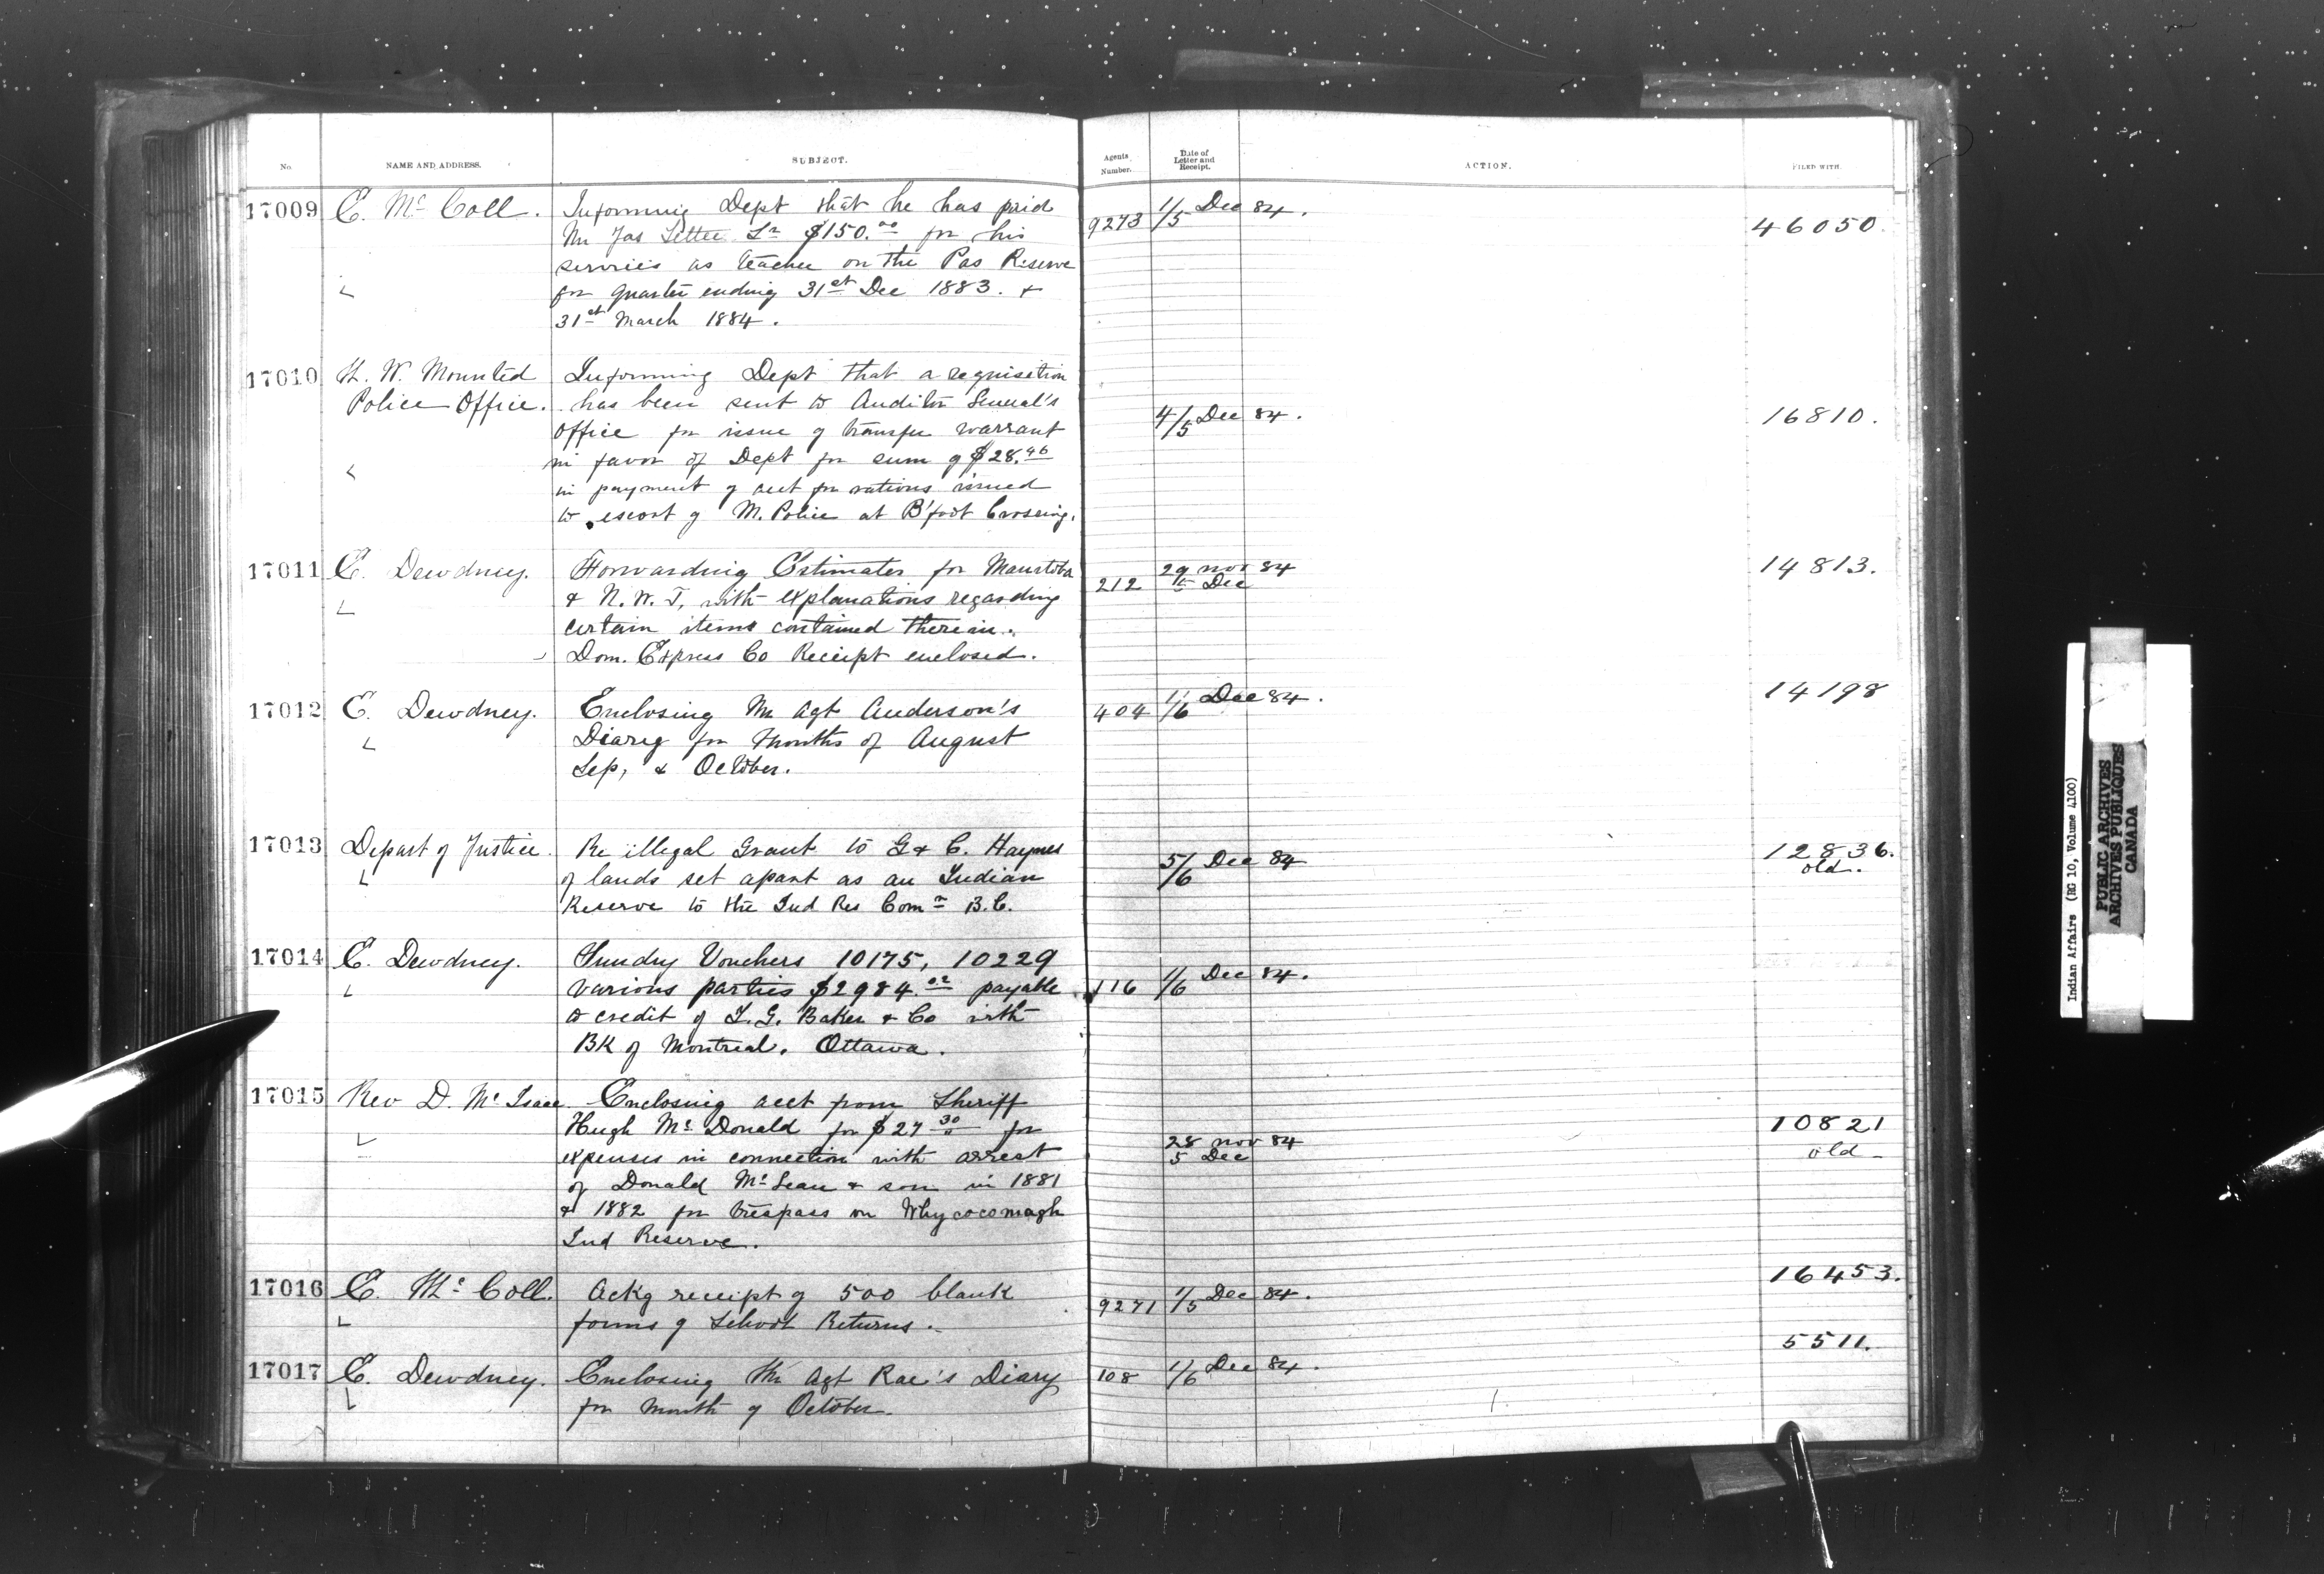 No.
NAME AND ADDRESS.
SUBJECT.
Agents Number.
Date of Letter and Receipt.
ACTION.
FILED WITH.
17009 E. McColl. Informing Dept that he has paid 9273 1/5 Dec 84. 46050.
Mr Jas Settee Sr $150.00 for his
services as teacher on the Pas Reserve
for quarter ending 31st Dec 1883. &
31st March 1884.
17010 N. W. Mounted Informing Dept that a requisition
Police Office. has been sent to Auditor General's 4/5 Dec 84. 16810.
Office for issue of transfer warrant
in favor of Dept for sum of $28.96
in payment of acct for rations issued
to escort of M. Police at B'foot Crossing.
17011 E. Dewdney. Forwarding Estimates for Manitoba 212 29 Nov 84 14813.
& N.W.T. with explanations regarding 5 Dec
certain items contained therein.
Dom. Express Co Receipt enclosed.
17012 E. Dewdney. Enclosing In Agt Anderson's 404 1/6 Dec 84. 14198
Diary for Months of August
Sep, & October.
17013 Depart of Justice. Re illegal Grant to G & C. Haynes 5/6 Dec 84 12836.
of lands set apart as an Indian old.
Reserve to the Ind Res Comr B.C.
17014 E. Dewdney. Sundry Vouchers 10175, 10229
various parties $2984.02 payable 116 1/6 Dec 84.
to credit of I. G. Baker & Co with
BK of Montreal. Ottawa.
17015 Rev D. McIsaac. Enclosing acct from Sheriff
Hugh McDonald for $27.30 for 28 Nov 84 10821
expenses in connection with arrest 5 Dec old
of Donald McLean & son in 1881
& 1882 for trespass on Whycocomagh
Ind Reserve.
17016 E. McColl. Ackg receipt of 500 blank 9271 1/5 Dec 84. 16453.
forms of School Returns.
17017 E. Dewdney. Enclosing In Agt Rae's Diary 108 1/6 Dec 84. 5511.
for Month of October.
Indian Affairs (RG 10, Volume 4100)
PUBLIC ARCHIVES
ARCHIVES PUBLIQUES
CANADA